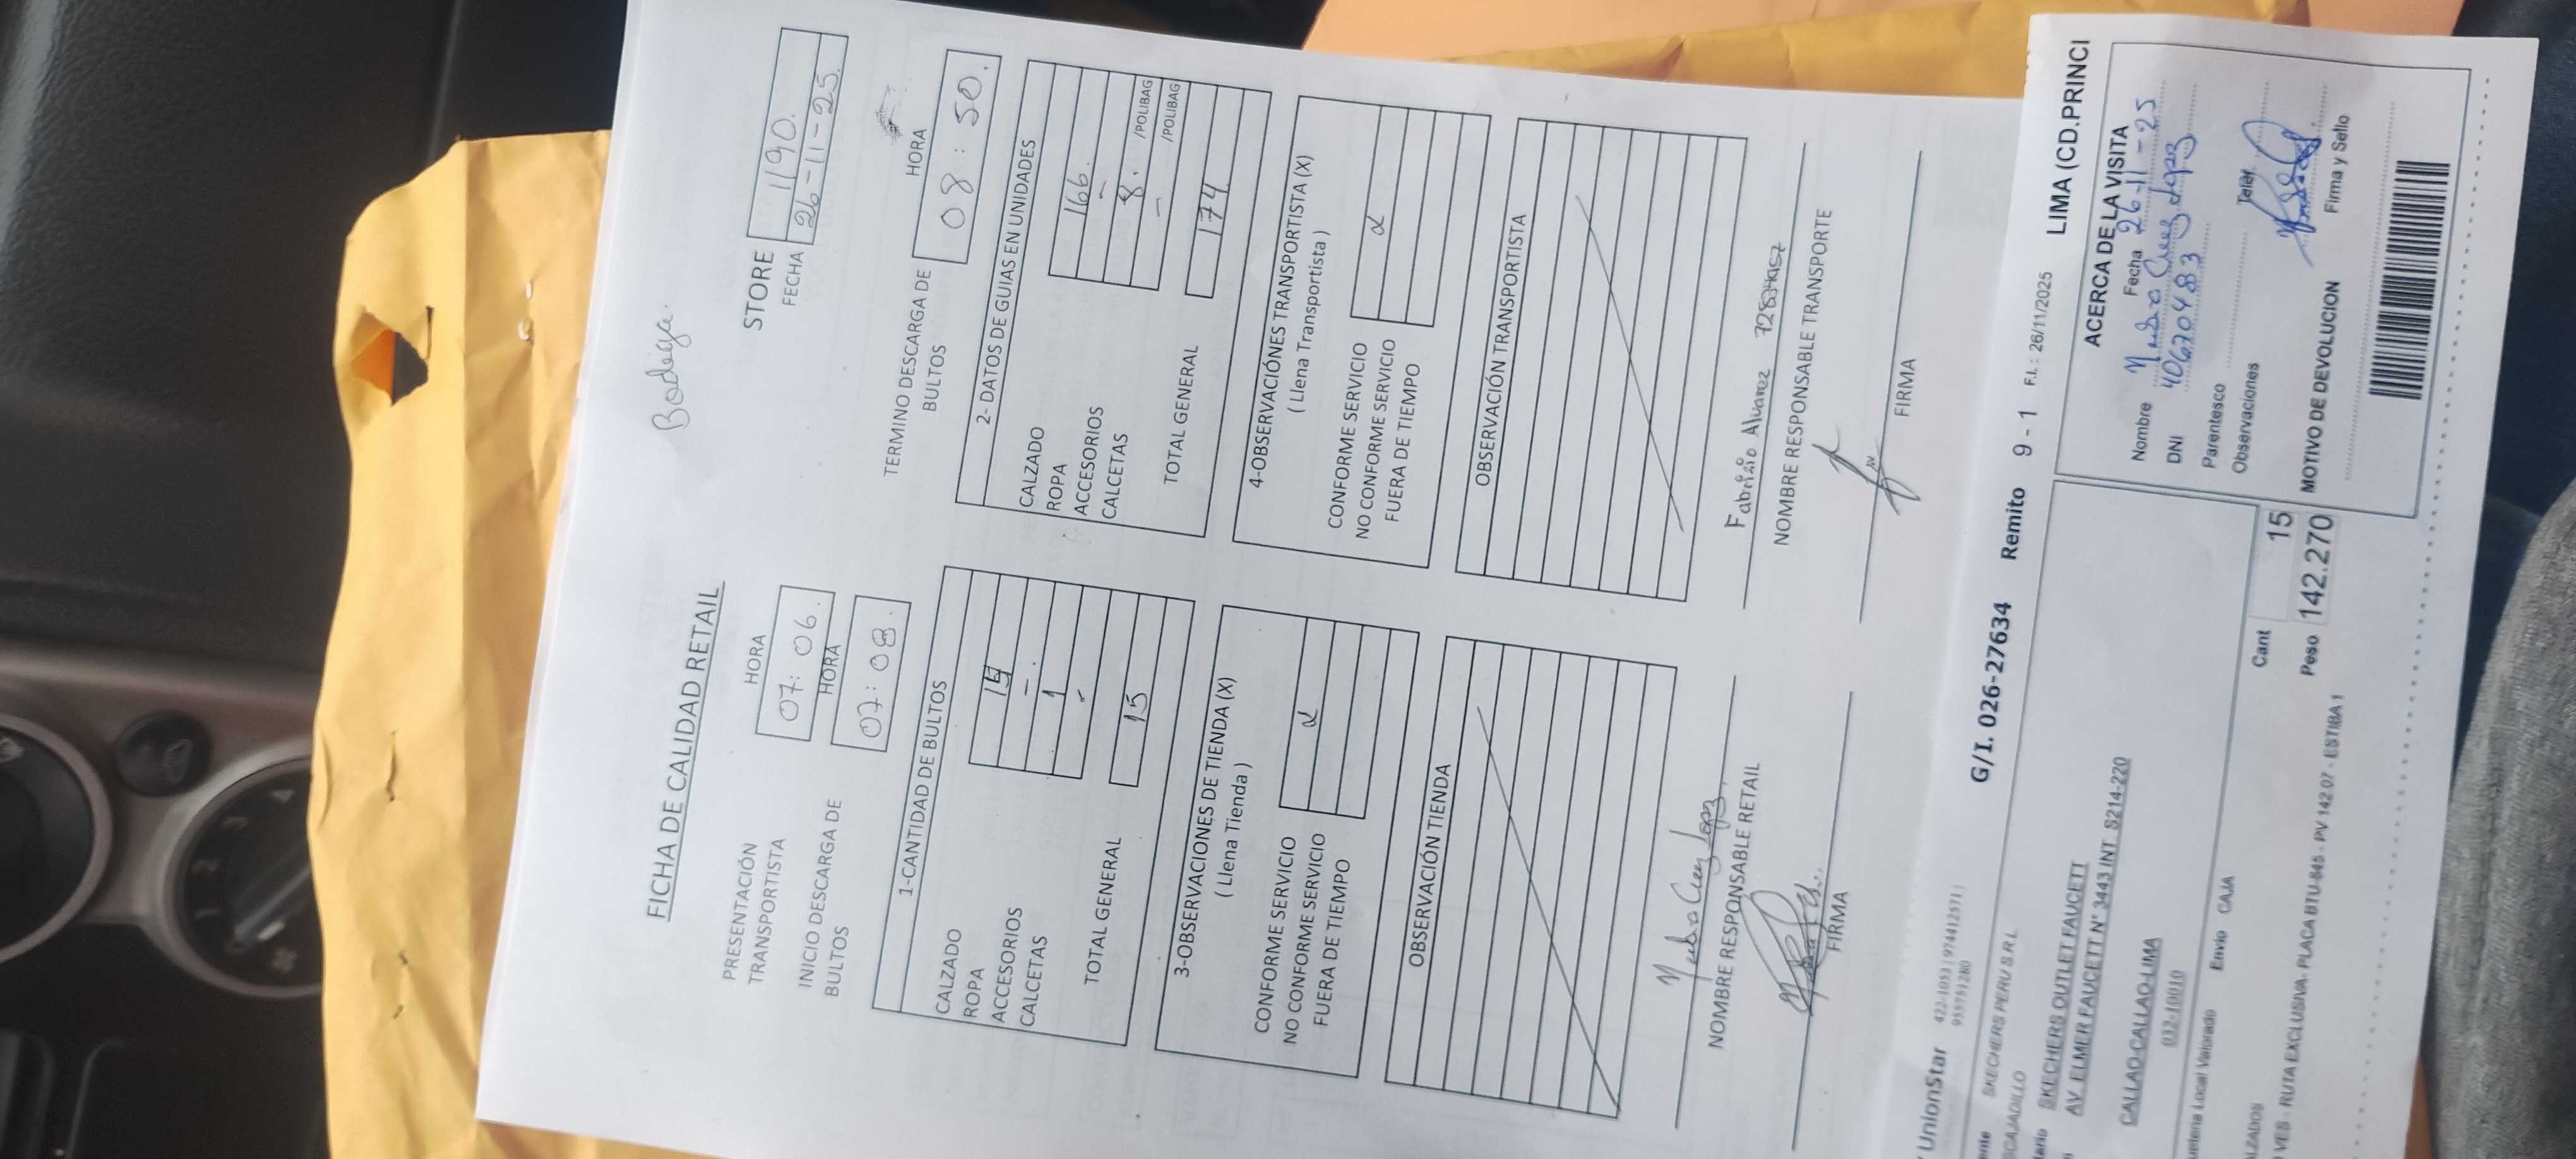 Bodega.
FICHA DE CALIDAD RETAIL
STORE 1190.
FECHA 26-11-25.
PRESENTACIÓN TRANSPORTISTA
HORA
07:06.
INICIO DESCARGA DE BULTOS
HORA
07:08.
TERMINO DESCARGA DE BULTOS
HORA
08:50.
1-CANTIDAD DE BULTOS
CALZADO 14
ROPA -
ACCESORIOS 1
CALCETAS -
TOTAL GENERAL 15
2- DATOS DE GUIAS EN UNIDADES
CALZADO 166.
ROPA -
ACCESORIOS 8. /POLIBAG
CALCETAS - /POLIBAG
TOTAL GENERAL 174
3-OBSERVACIONES DE TIENDA (X)
( Llena Tienda )
CONFORME SERVICIO
NO CONFORME SERVICIO
FUERA DE TIEMPO
4-OBSERVACIÓNES TRANSPORTISTA (X)
( Llena Transportista )
CONFORME SERVICIO
NO CONFORME SERVICIO
FUERA DE TIEMPO
OBSERVACIÓN TIENDA
OBSERVACIÓN TRANSPORTISTA
NOMBRE RESPONSABLE RETAIL
FIRMA
Fabrizio Alvarez
NOMBRE RESPONSABLE TRANSPORTE
FIRMA
UnionStar
G/I. 026-27634 Remito 9 - 1 F.I. : 26/11/2025 LIMA (CD.PRINCI
SKECHERS PERU S.R.L.
SKECHERS OUTLET FAUCETT
AV. ELMER FAUCETT N° 3443 INT S214-220
CALLAO-CALLAO-LIMA
Envio CAJA
Cant 15
Peso 142.270
RUTA EXCLUSIVA- PLACA BTU-845 - PV 142.07 - ESTIBA 1
ACERCA DE LA VISITA
Nombre Fecha 26-11-25
DNI 40670483
Parentesco
Observaciones
MOTIVO DE DEVOLUCION
Firma y Sello